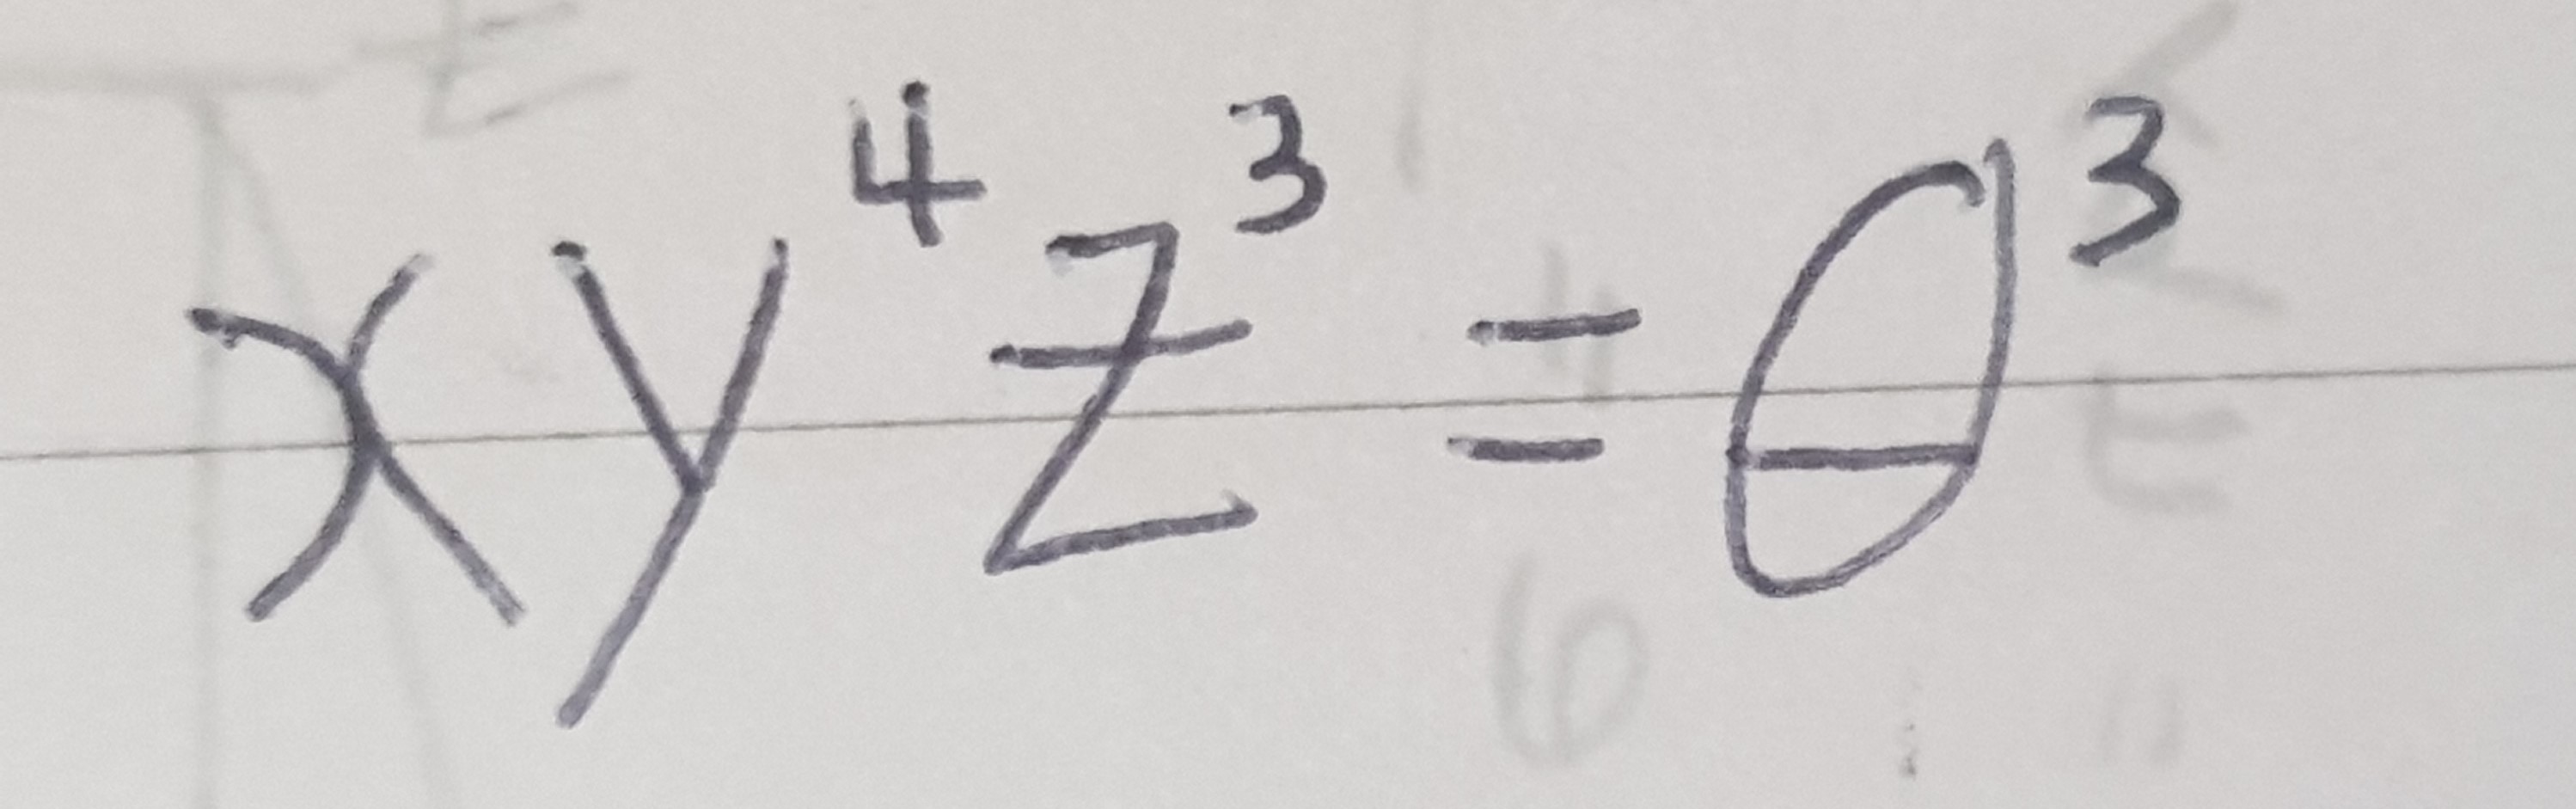 xy⁴z³ = θ³